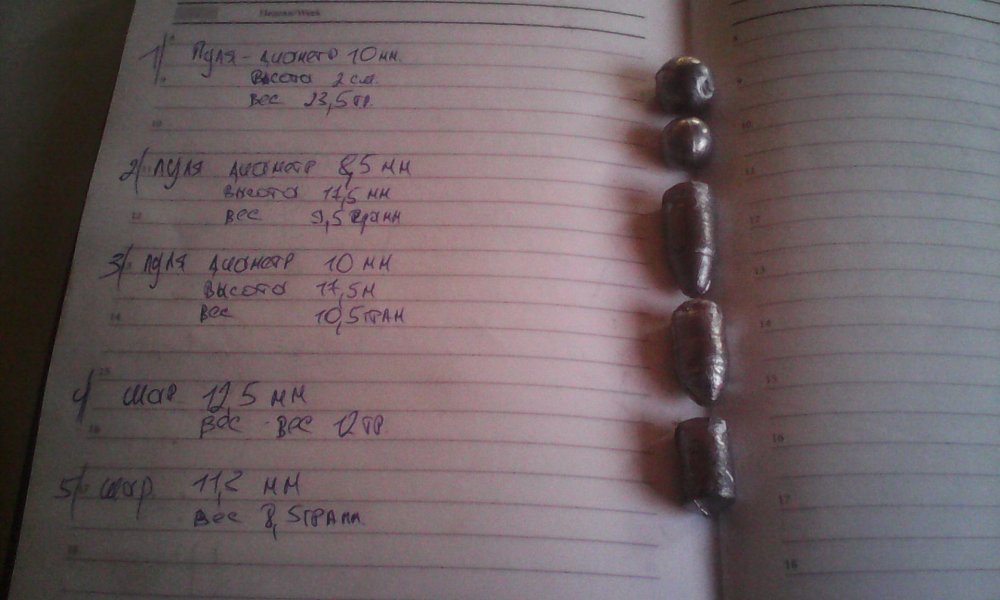 Неделя/Week
1/ Пуля - диаметр 10 мм.
высота 2 см.
вес 23,5 гр.
2/ пуля диаметр 8,5 мм
высота 17,5 мм
вес 9,5 грамм
3/ пуля диаметр 10 мм
высота 17,5 м
вес 10,5 грам
4/ шар 12,5 мм
вес - вес 12 гр
5/ шар 11,2 мм
вес 8,5 грамм.